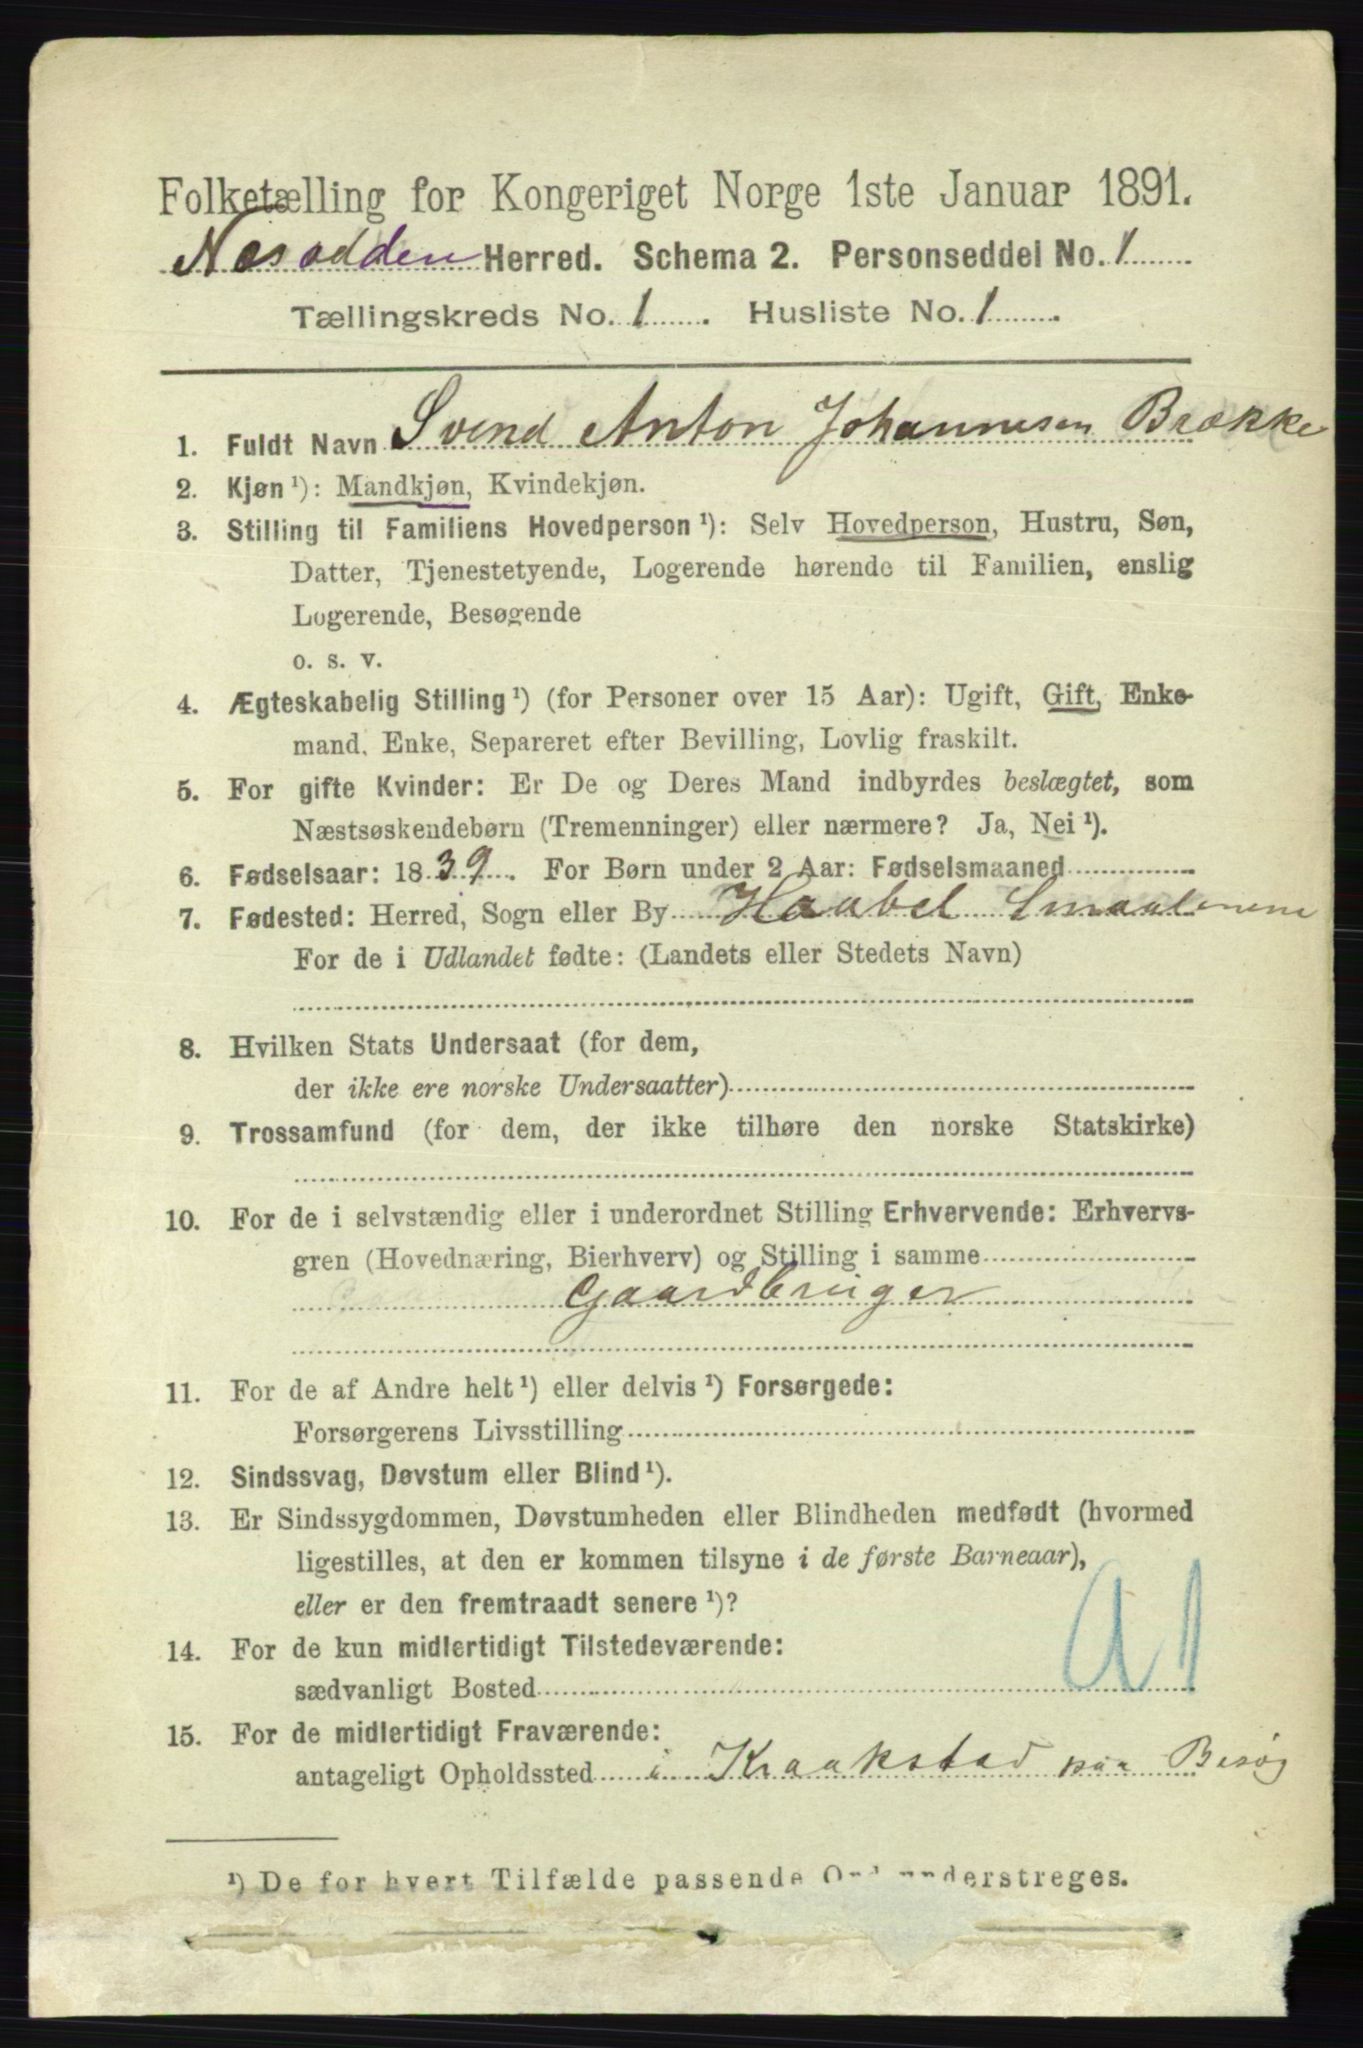 Folketælling for Kongeriget Norge 1ste Januar 1891.
Næsodden Herred. Schema 2. Personseddel No. 1
Tællingskreds No. 1. Husliste No. 1.
1. Fuldt Navn Svend Anton Johannesen Brække
2. Kjøn ¹): Mandkjøn, Kvindekjøn.
3. Stilling til Familiens Hovedperson ¹): Selv Hovedperson, Hustru, Søn,
Datter, Tjenestetyende, Logerende hørende til Familien, enslig
Logerende, Besøgende
o. s. v.
4. Ægteskabelig Stilling ¹) (for Personer over 15 Aar): Ugift, Gift, Enke-
mand, Enke, Separeret efter Bevilling, Lovlig fraskilt.
5. For gifte Kvinder: Er De og Deres Mand indbyrdes beslægtet, som
Næstsøskendebørn (Tremenninger) eller nærmere? Ja, Nei ¹).
6. Fødselsaar: 1839. For Børn under 2 Aar: Fødselsmaaned
7. Fødested: Herred, Sogn eller By Haabel Smaalenene
For de i Udlandet fødte: (Landets eller Stedets Navn)
8. Hvilken Stats Undersaat (for dem,
der ikke ere norske Undersaatter)
9. Trossamfund (for dem, der ikke tilhøre den norske Statskirke)
10. For de i selvstændig eller i underordnet Stilling Erhvervende: Erhvervs-
gren (Hovednæring, Bierhverv) og Stilling i samme
Gaardbruger
11. For de af Andre helt ¹) eller delvis ¹) Forsørgede:
Forsørgerens Livsstilling
12. Sindssvag, Døvstum eller Blind ¹).
13. Er Sindssygdommen, Døvstumheden eller Blindheden medfødt (hvormed
ligestilles, at den er kommen tilsyne i de første Barneaar),
eller er den fremtraadt senere ¹)?
14. For de kun midlertidigt Tilstedeværende:
sædvanligt Bosted
A 1
15. For de midlertidigt Fraværende:
antageligt Opholdssted i Kraakstad paa Besøg
¹) De for hvert Tilfælde passende Ord understreges.